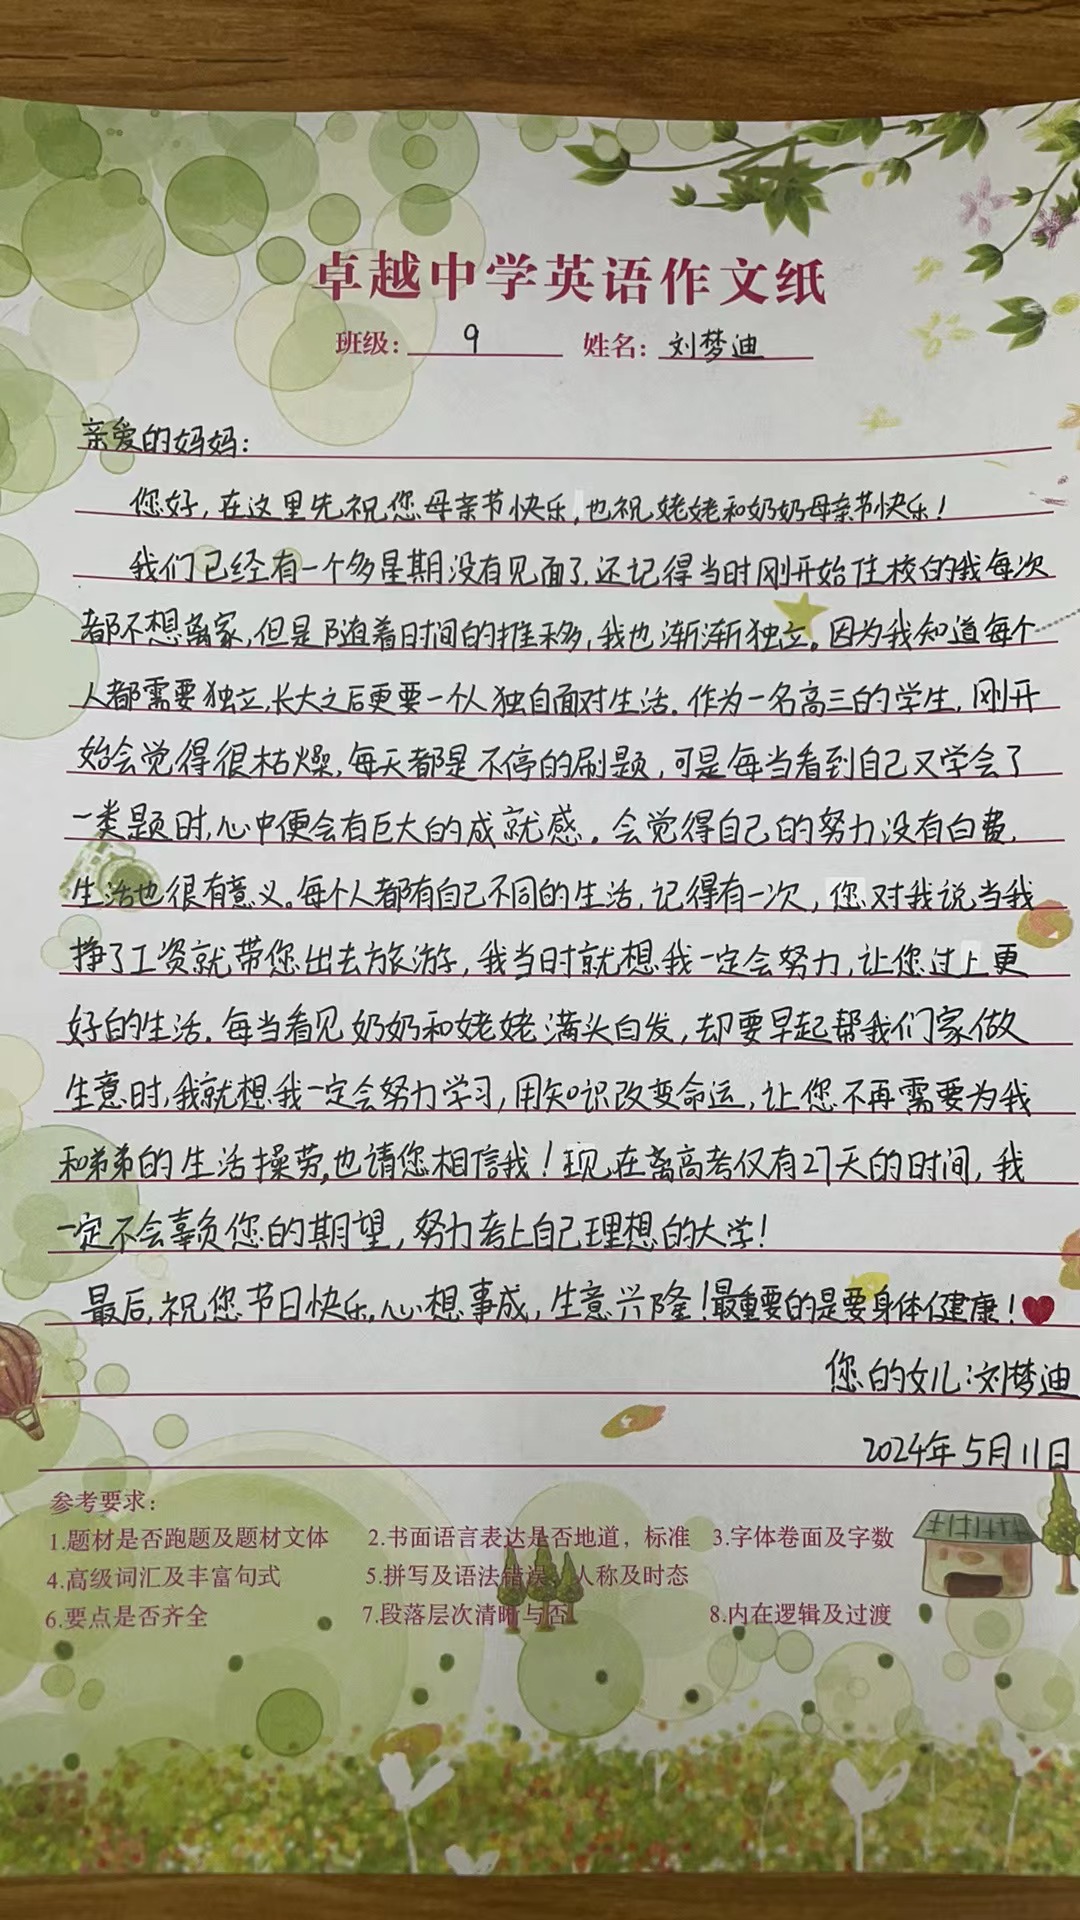 卓越中学英语作文纸
班级: 9 姓名: 刘梦迪
亲爱的妈妈:
您好,在这里先祝您母亲节快乐,也祝姥姥和奶奶母亲节快乐!
我们已经有一个多星期没有见面了,还记得当时刚开始住校的我每次
都不想离家,但是随着时间的推移,我也渐渐独立。因为我知道每个
人都需要独立,长大之后更要一个人独自面对生活。作为一名高三的学生,刚开
始会觉得很枯燥,每天都是不停的刷题,可是每当看到自己又学会了
一类题时,心中便会有巨大的成就感。会觉得自己的努力没有白费,
生活也很有意义。每个人都有自己不同的生活,记得有一次,您对我说当我
挣了工资就带您出去旅游,我当时就想我一定会努力,让您过上更
好的生活。每当看见奶奶和姥姥满头白发,却要早起帮我们家做
生意时,我就想我一定会努力学习,用知识改变命运,让您不再需要为我
和弟弟的生活操劳,也请您相信我!现在离高考仅有27天的时间,我
一定不会辜负您的期望,努力考上自己理想的大学!
最后,祝您节日快乐,心想事成,生意兴隆!最重要的是要身体健康!
您的女儿:刘梦迪
2024年5月11日
参考要求:
1.题材是否跑题及题材文体 2.书面语言表达是否地道,标准 3.字体卷面及字数
4.高级词汇及丰富句式 5.拼写及语法错误,人称及时态
6.要点是否齐全 7.段落层次清晰与否 8.内在逻辑及过渡